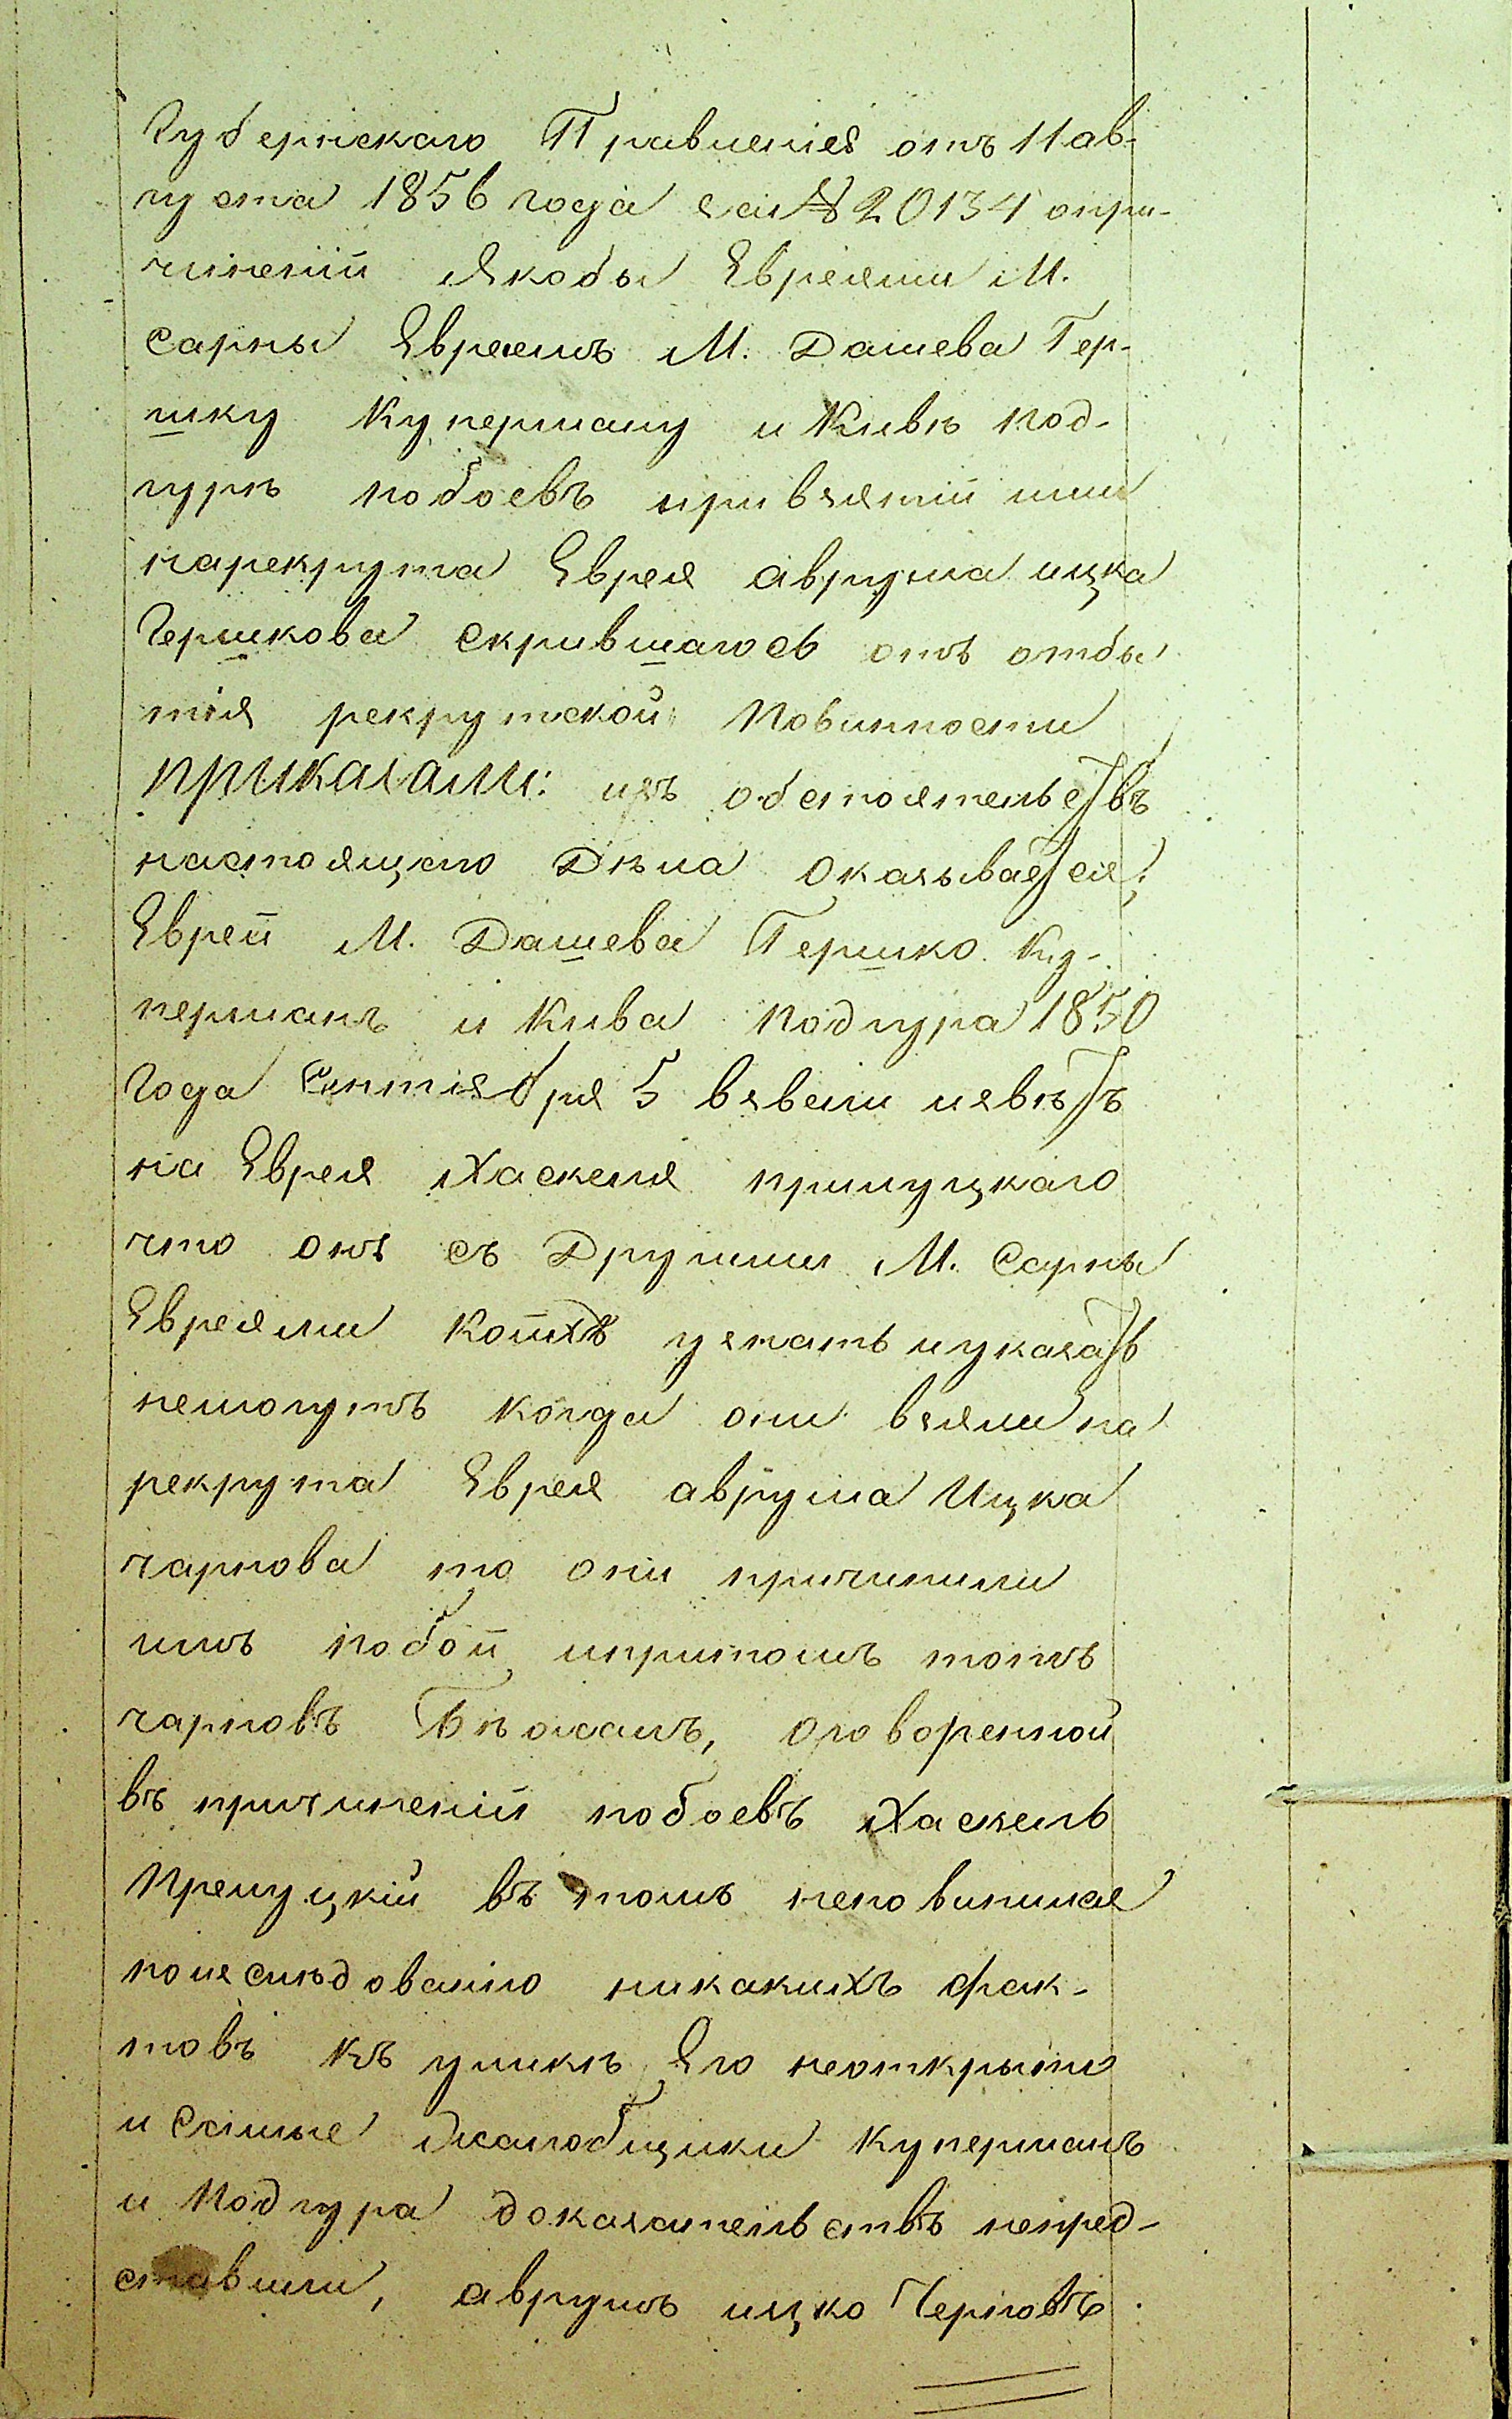 Губернскаго Правленія отъ 11 ав-
густа 1856 года за № 20134 опри-
чиненіи Якобы Евреями М.
Сарны Евреямъ М. Дашева Гер-
шку Куперману и Кивѣ Под-
гурѣ побоевъ при взятіи ими
нарекрута Еврея аврума ицка
Гершкова скрившагось отъ отбы
тія рекрутской Повинности
приказали: изъ обстоятельствъ
настоящего Дѣла оказывается;
Евреи М. Дашева Гершко Ку-
перманъ и Кива Подгура 1850
года Сентября 5 взвели извѣтъ
на Еврея Хаскеля прилуцкаго
что онъ съ Другими М. Сарны
Евреями коихъ узнать иуказать
немогутъ когда они взяли на
рекрута Еврея аврума Ицка
чарнова то они причинили
имъ побои ипритомъ тотъ
чарновъ Бѣжалъ, оговоренной
въ причиненіи побоевъ Хаскель
Прелуцкій въ томъ неповинился
поизслѣдованію никакихъ фак-
товъ къ уликѣ Его неоткрыто
и Самые жалобщики Куперманъ
и Подгура доказательствъ непред-
ставили, аврумъ ицко Черновъ